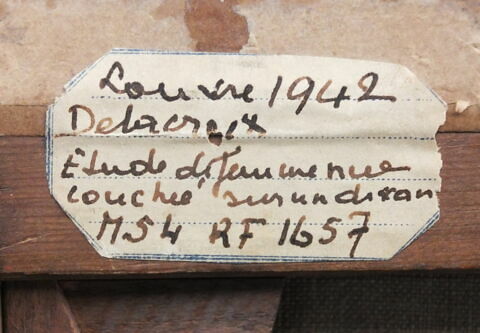 Louvre 1942
Delacroix
Etude de femme nue
couchée sur un divan
M54 RF 1657